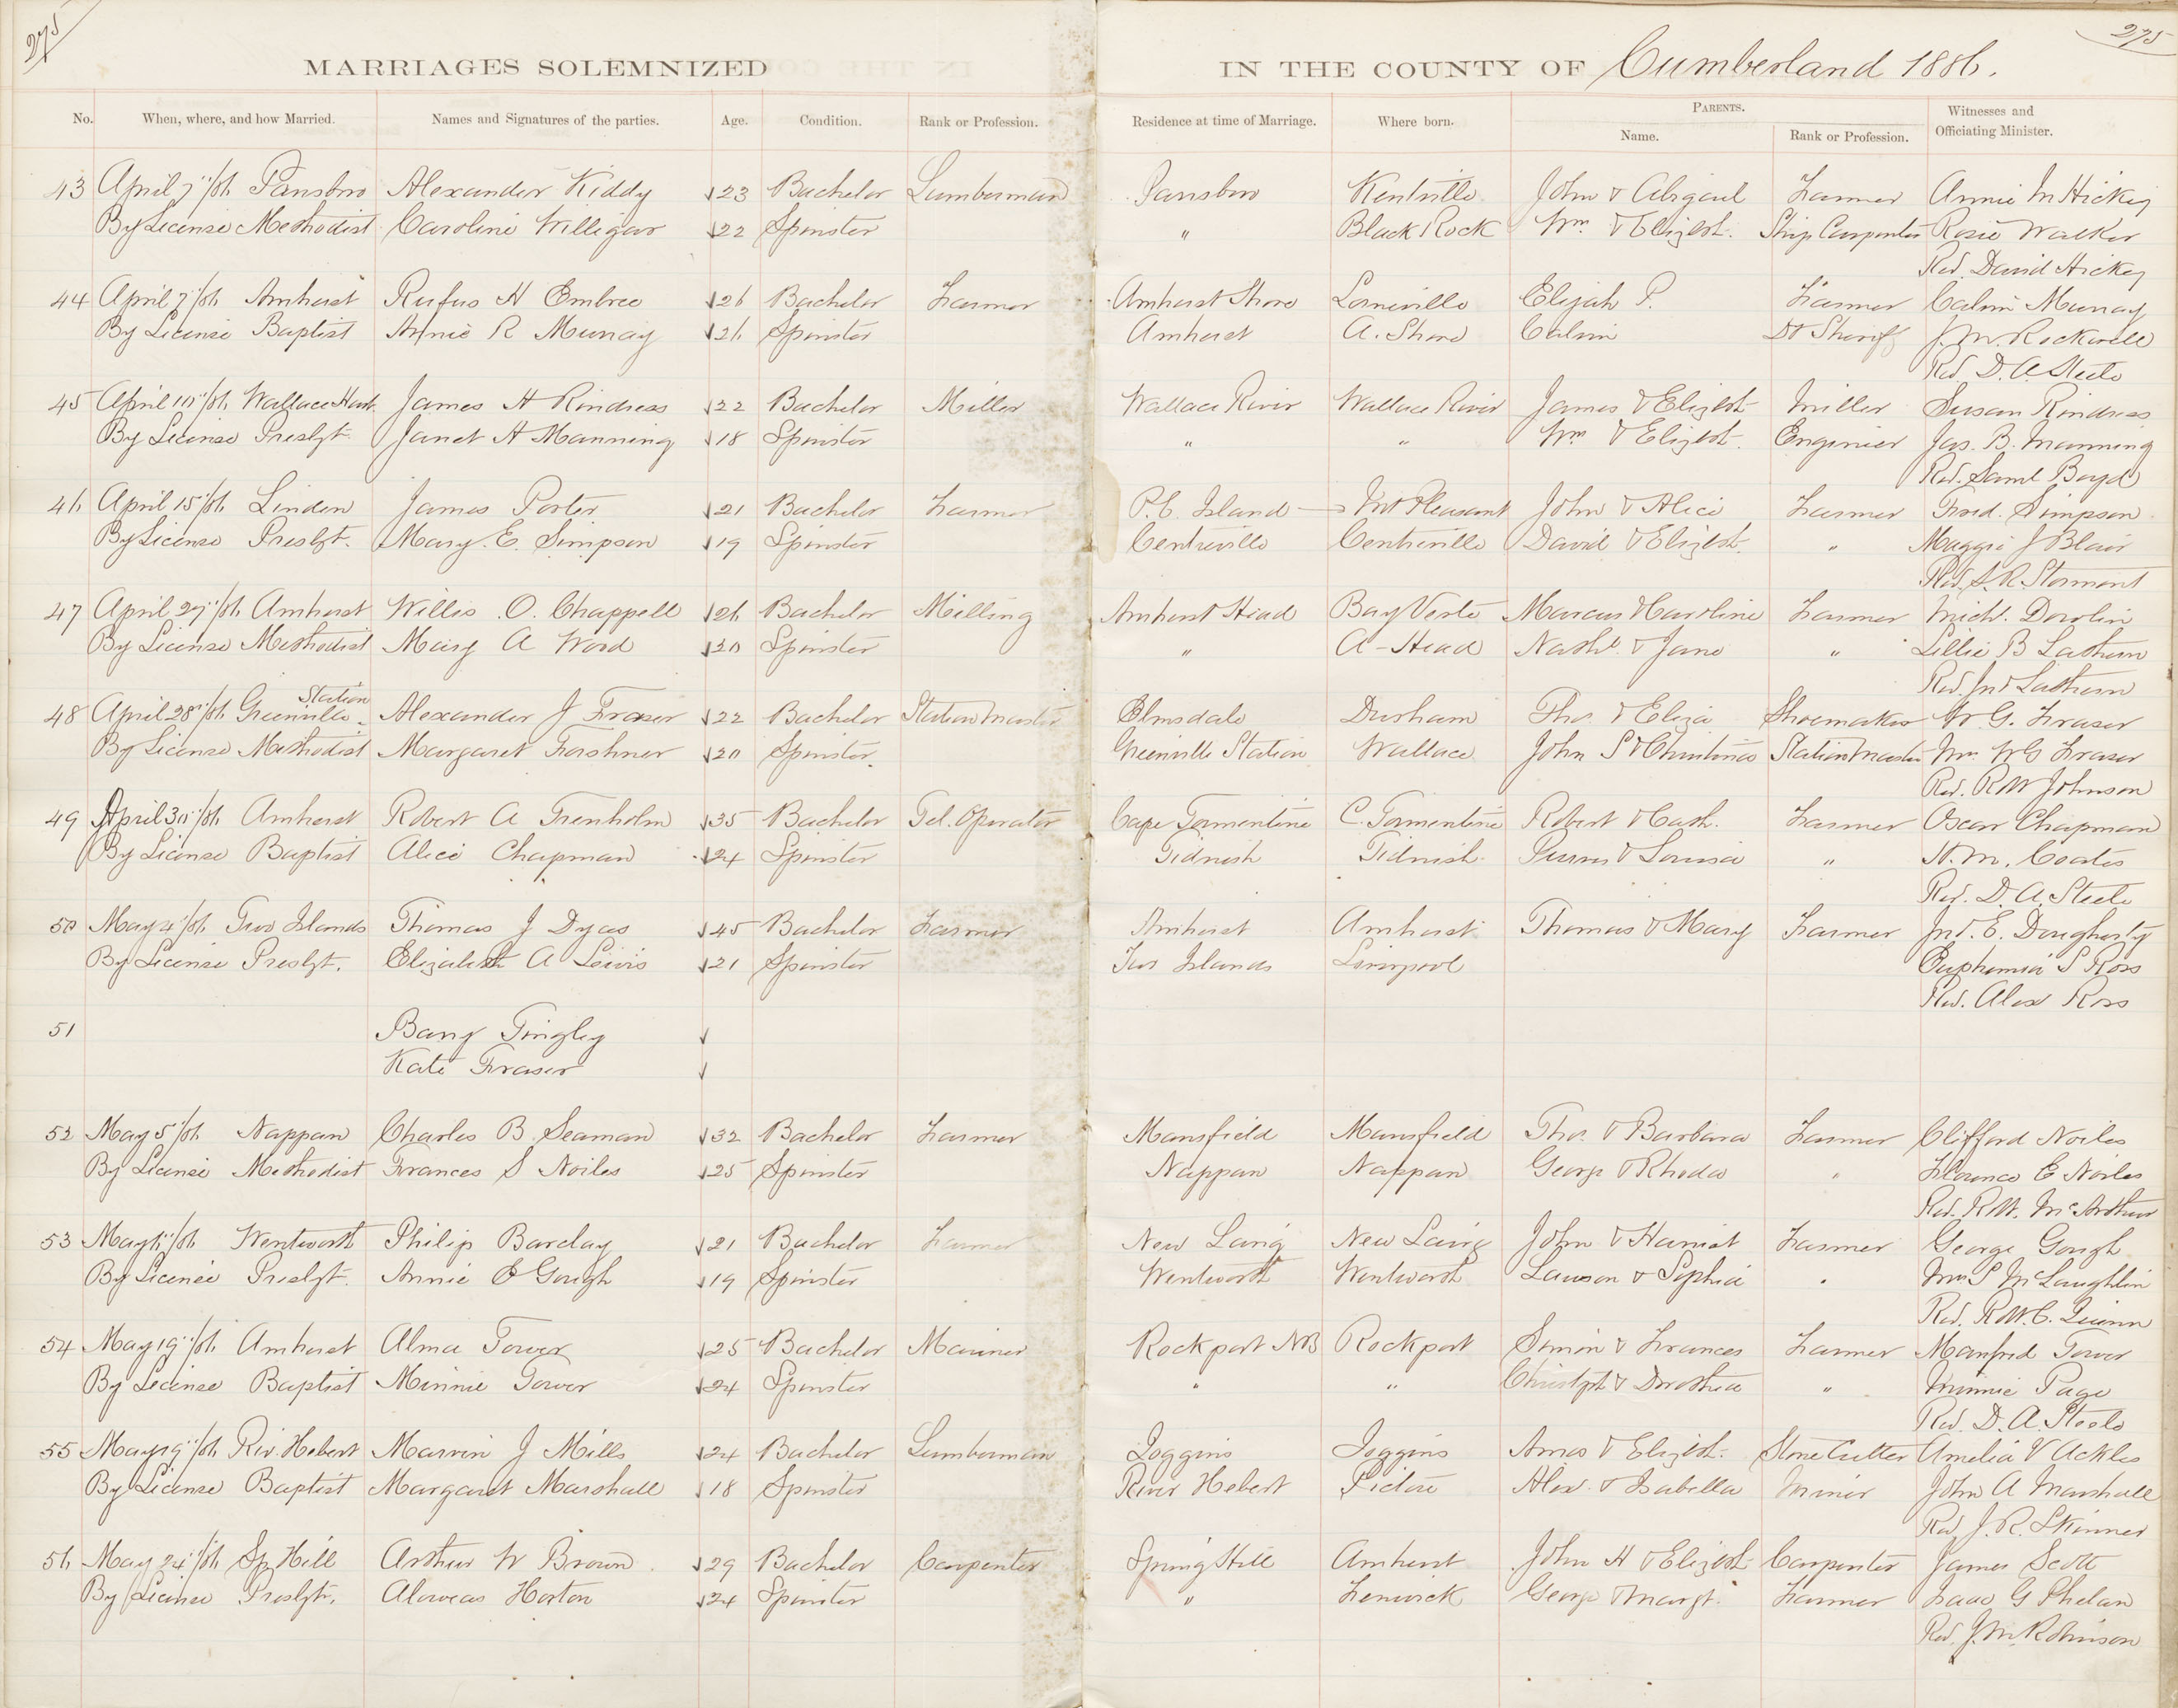 275
275
MARRIAGES SOLEMNIZED IN THE COUNTY OF Cumberland 1886.
No. When, where, and how Married. Names and Signatures of the parties. Age. Condition. Rank or Profession. Residence at time of Marriage. Where born. PARENTS. Name. Rank or Profession. Witnesses and Officiating Minister.
43 April 7"/86 Parrsboro Alexander Kiddy 23 Bachelor Lumberman Parrsboro Kentville John & Abigail Farmer Annie M Hickey
By License Methodist Caroline Willigar 22 Spinster " Black Rock Wm & Elizbt. Ship Carpenter Rosie Walker
Rev. David Hickey
44 April 7"/86 Amherst Rufus H Embree 26 Bachelor Farmer Amherst Shore Lorneville Elijah P. Farmer Calvin Murray
By License Baptist Annie R Murray 26 Spinster Amherst A. Shore Calvin Dt Sheriff J. M. Rockwell
Rev. D. A. Steele
45 April 10"/86 Wallace Harb James H Rindress 22 Bachelor Miller Wallace River Wallace River James & Elizbt Miller Susan Rindress
By License Presbyt. Janet A Manning 18 Spinster " " Wm & Elizbt. Engineer Jas. B. Manning
Rev. Saml Boyd
46 April 15"/86 Linden James Porter 21 Bachelor Farmer P. E. Island Mt Pleasant John & Alice Farmer Fred. Simpson
By License Presbyt. Mary E. Simpson 19 Spinster Centreville Centreville David & Elizbt. " Maggie J Blair
Rev. Stormont
47 April 27"/86 Amherst Willis O. Chappell 26 Bachelor Milling Amherst Head Bay Verte Marcus & Caroline Farmer Michl. Dowlin
By License Methodist Mary A Word 20 Spinster " A-Head Nathl. & Jane " Lillie B Lathern
Rev. Jno Lathern
48 April 28"/86 Greenville Station Alexander J Fraser 22 Bachelor Station Master Elmsdale Durham Tho. & Eliza Shoemaker W. G. Fraser
By License Methodist Margaret Forshner 20 Spinster. Greenville Station Wallace John S & Christina Station Master Mrs W G Fraser
Rev. R W Johnson
49 April 30"/86 Amherst Robert A Trenholm 35 Bachelor Tel. Operator Cape Tormentine C. Tormentine Robert & Cath. Farmer Oscar Chapman
By License Baptist Alice Chapman 24 Spinster Tidnish Tidnish & Louisa " H. M. Coates
Rev. D. A. Steele
50 May 4"/86 Two Islands Thomas J Dycas 45 Bachelor Farmer Amherst Amherst Thomas & Mary Farmer Jno. E. Dougherty
By License Presbyt. Elizabeth A Lewis 21 Spinster Two Islands Liverpool Euphemia S Ross
Rev. Alex Ross
51 Barry Tingley
Kate Fraser
52 May 5"/86 Nappan Charles B Seaman 32 Bachelor Farmer Mansfield Mansfield Tho. & Barbara Farmer Clifford Noiles
By License Methodist Frances S Noiles 25 Spinster Nappan Nappan George & Rhoda " Florence E Noiles
Rev. McArthur
53 May "/86 Wentworth Philip Barclay 21 Bachelor Farmer New Lairg New Lairg John & Harriet Farmer George Gough
By License Presbyt. Annie E Gough 19 Spinster Wentworth Wentworth Lawson & Sophia " Mrs S McLaughlin
Rev. Quinn
54 May 19"/86 Amherst Alma Tower 25 Bachelor Mariner Rockport NB Rockport Simon & Frances Farmer Manfred Tower
By License Baptist Minnie Tower 24 Spinster " " Christph & Dorothea " Minnie Page
Rev. D. A. Steele
55 May 19"/86 Riv. Hebert Marvin J Mills 24 Bachelor Lumberman Joggins Joggins Amos & Elizbt. Stone Cutter Amelia V Ackles
By License Baptist Margaret Marshall 18 Spinster River Hebert Pictou Alex. & Isabella Miner John A Marshall
Rev. J. R. Skinner
56 May 24"/86 Sp. Hill Arthur W Brown 29 Bachelor Carpenter Spring Hill Amherst John H & Elizbt Carpenter James Scott
By License Presbyt. Horton 24 Spinster " Fenwick George & Margt. Farmer Isaac G Phelan
Rev. J. M. Robinson